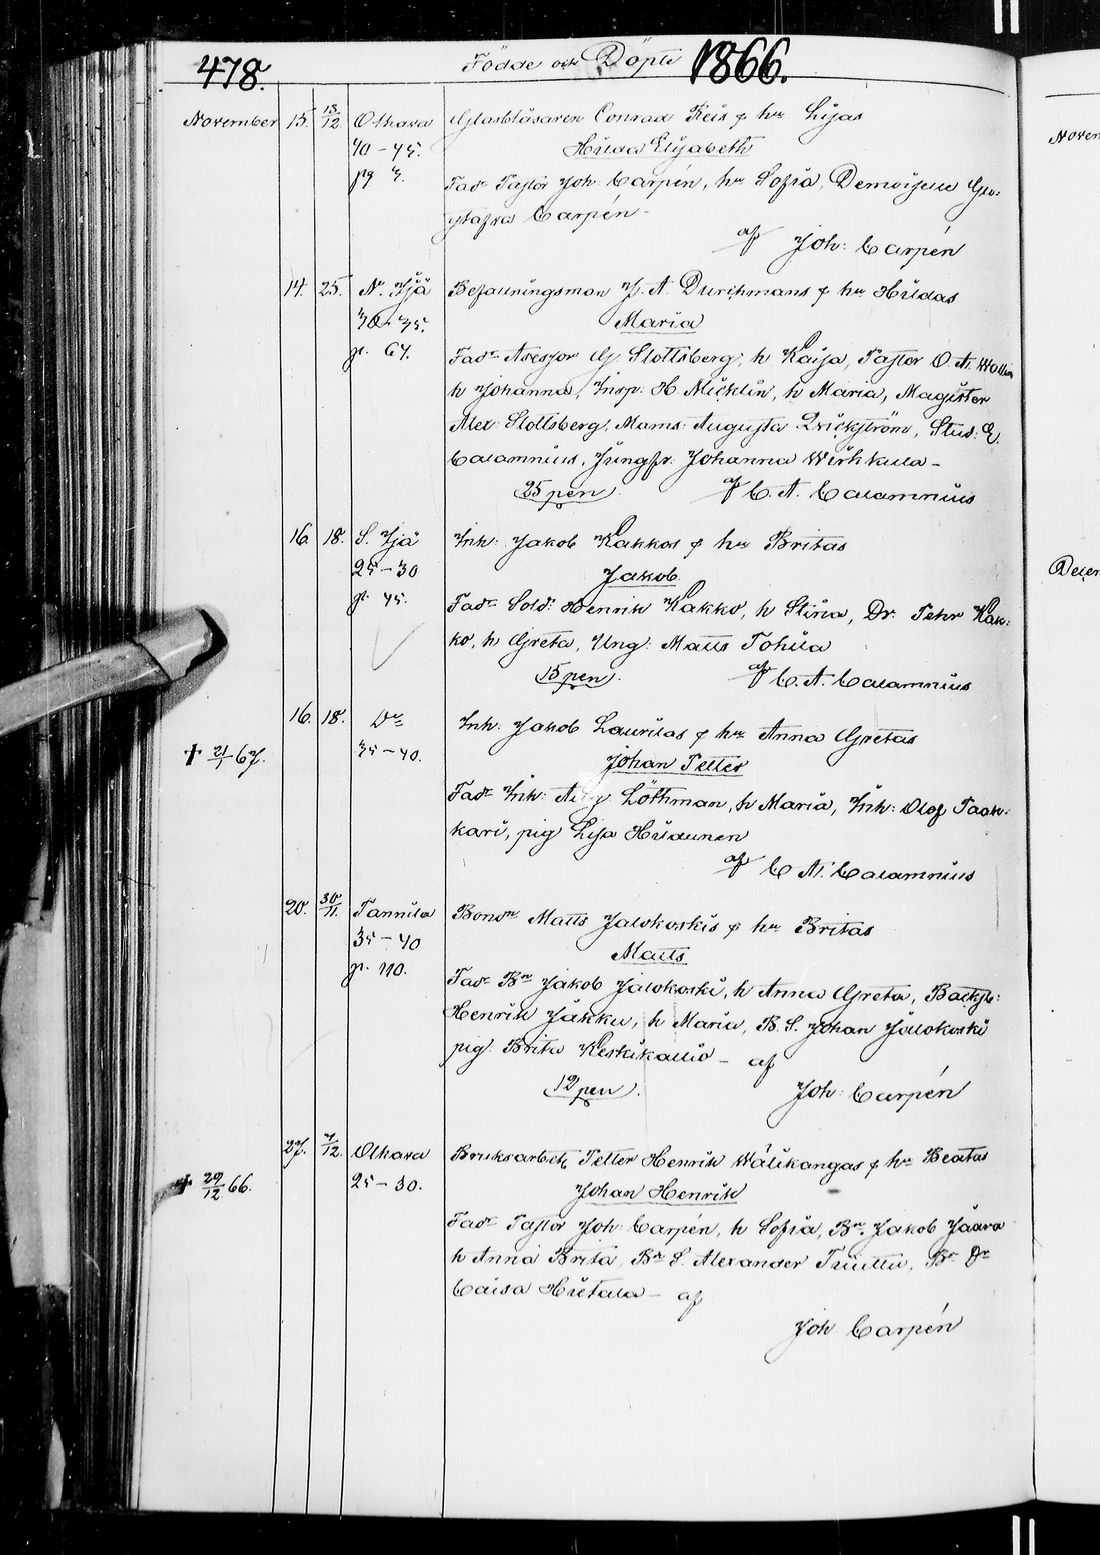 478. Födde och Döpte 1866.
November 15. 13/12 Olhava Glasblåsaren Conrad Reis o hu Lisas
40-45. Hilda Elisabeth
pg Fadr Pastor Joh: Carpén, hu Sofia, Demoiselle Gu-
stafva Carpén-
af Joh: Carpén
14. 25. N. Ijå Befallningsman J. A. Durchmans o hu Hildas
30-35. Maria
p. 67. Fadr Asessor G. Slottsberg, h Kaisa, Pastor O. A. Wallin
h Johanna, Insp: H. Nicklin, h Maria, Magister
Alex: Slottsberg, Mams: Augusta Qvickström, Stud: E.
Calamnius, Jungfr: Johanna Wirkkula-
25 pen. af C. A. Calamnius
16. 18. S. Ijå Inh: Jakob Kakkos o hu Britas
25-30 Jakob
p. 45. Fadr Sold: Henrik Kakko, h Stina, Dr. Pehr Kak-
ko, h Greta, Yng: Matts Tohila
15 pen. af C. A. Calamnius
16. 18. Do Inh: Jakob Laurilas o hu Anna Gretas
† 21/1 67. 35-40. Johan Petter
Fadr Inh: Löthman, h Maria, Inh: Olof Paak-
kari, pig Lisa Hildunen
af C. A. Calamnius
20. 30/11. Tannila Bondn Matts Jalokoskis o hu Britas
35-40 Matts
p. 110. Fadr Bn Jakob Jalokoski, h Anna Greta, Backst:
Henrik Jakku, h Maria, B. S. Johan Jalokoski
pig. Brita Keskikallio - af
12 pen. Joh: Carpén
27. 7/12. Olhava Bruksarbeth Petter Henrik Wälikangas o hu Beatas
† 29/12 66. 25-30. Johan Henrik
Fadr Pastor Joh: Carpén, h Sofia, Bn. Jakob Jaara
h Anna Brita, Bn S. Alexander Tuuttu, Bn Dr
Caisa Hietala - af
Joh Carpén
Noven
Decem